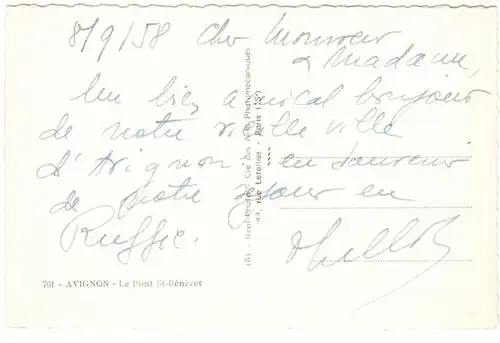 8/9/58 Cher Monsieur
& Madame,
Un bien amical bonjour
de notre vieille ville
d'Avignon, en souvenir
de notre séjour en
764 - AVIGNON - Le Pont St-Bénézet
(B) - Real-Photo - Cie des Arts Photomécaniques
44, rue Letellier - Paris (15e)